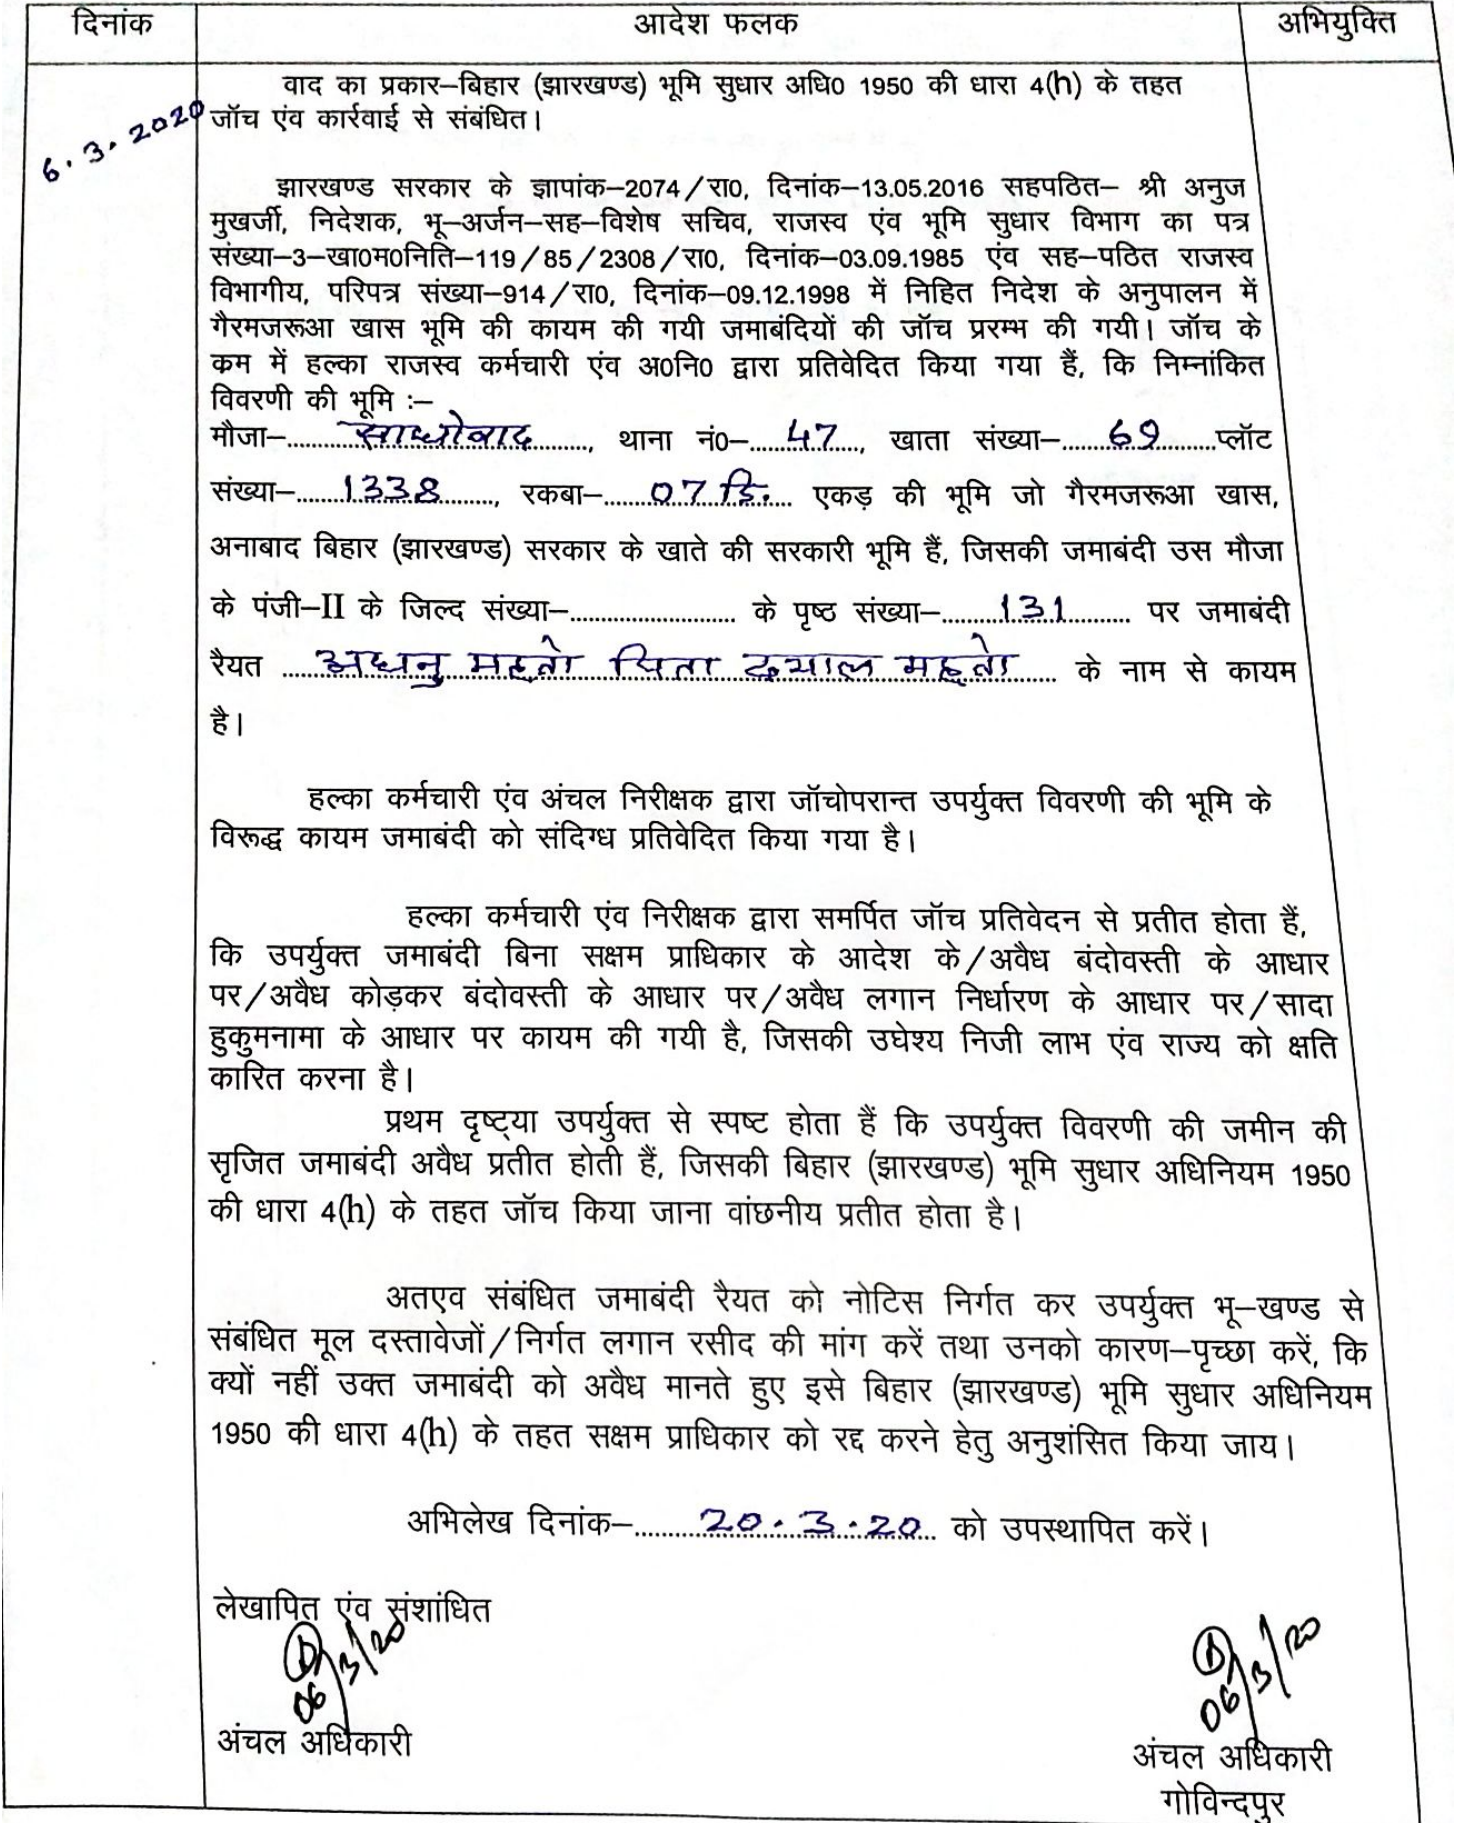 दिनांक
आदेश फलक
अभियुक्ति
6.3.2020
वाद का प्रकार–बिहार (झारखण्ड) भूमि सुधार अधि0 1950 की धारा 4(h) के तहत
जॉच एंव कार्रवाई से संबंधित।
झारखण्ड सरकार के ज्ञापांक–2074/रा0, दिनांक–13.05.2016 सहपठित– श्री अनुज
मुखर्जी, निदेशक, भू–अर्जन–सह–विशेष सचिव, राजस्व एंव भूमि सुधार विभाग का पत्र
संख्या–3–खा0म0निति–119/85/2308/रा0, दिनांक–03.09.1985 एंव सह–पठित राजस्व
विभागीय, परिपत्र संख्या–914/रा0, दिनांक–09.12.1998 में निहित निदेश के अनुपालन में
गैरमजरूआ खास भूमि की कायम की गयी जमाबंदियों की जॉच प्ररम्भ की गयी। जॉच के
क्रम में हल्का राजस्व कर्मचारी एंव अ0नि0 द्वारा प्रतिवेदित किया गया हैं, कि निम्नांकित
विवरणी की भूमि :–
मौजा–साधोबाद, थाना नं0–47, खाता संख्या–69प्लॉट
संख्या–1338, रकबा–07 डि. एकड़ की भूमि जो गैरमजरूआ खास,
अनाबाद बिहार (झारखण्ड) सरकार के खाते की सरकारी भूमि हैं, जिसकी जमाबंदी उस मौजा
के पंजी–II के जिल्द संख्या–.......................... के पृष्ठ संख्या–131 पर जमाबंदी
रैयत अघनु महतो पिता दयाल महतो के नाम से कायम
है।
हल्का कर्मचारी एंव अंचल निरीक्षक द्वारा जॉचोपरान्त उपर्युक्त विवरणी की भूमि के
विरूद्ध कायम जमाबंदी को संदिग्ध प्रतिवेदित किया गया है।
हल्का कर्मचारी एंव निरीक्षक द्वारा समर्पित जॉच प्रतिवेदन से प्रतीत होता हैं,
कि उपर्युक्त जमाबंदी बिना सक्षम प्राधिकार के आदेश के/अवैध बंदोवस्ती के आधार
पर/अवैध कोड़कर बंदोवस्ती के आधार पर/अवैध लगान निर्धारण के आधार पर/सादा
हुकुमनामा के आधार पर कायम की गयी है, जिसकी उघेश्य निजी लाभ एंव राज्य को क्षति
कारित करना है।
प्रथम दृष्ट्या उपर्युक्त से स्पष्ट होता हैं कि उपर्युक्त विवरणी की जमीन की
सृजित जमाबंदी अवैध प्रतीत होती हैं, जिसकी बिहार (झारखण्ड) भूमि सुधार अधिनियम 1950
की धारा 4(h) के तहत जॉच किया जाना वांछनीय प्रतीत होता है।
अतएव संबंधित जमाबंदी रैयत को नोटिस निर्गत कर उपर्युक्त भू–खण्ड से
संबंधित मूल दस्तावेजों/निर्गत लगान रसीद की मांग करें तथा उनको कारण–पृच्छा करें, कि
क्यों नहीं उक्त जमाबंदी को अवैध मानते हुए इसे बिहार (झारखण्ड) भूमि सुधार अधिनियम
1950 की धारा 4(h) के तहत सक्षम प्राधिकार को रद्द करने हेतु अनुशंसित किया जाय।
अभिलेख दिनांक–20.3.20 को उपस्थापित करें।
लेखापित एंव संशांधित
06/3/20
06/3/20
अंचल अधिकारी
अंचल अधिकारी
गोविन्दपुर